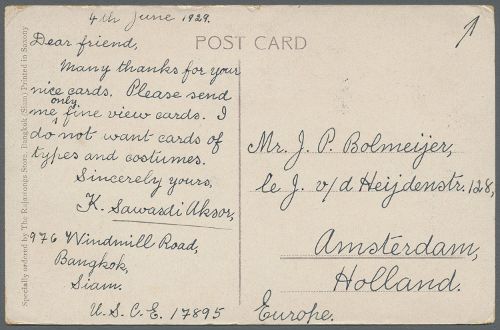 4th June 1929.
Dear friend,
Many thanks for your
nice cards. Please send
me only fine view cards. I
do not want cards of
types and costumes.
Sincerely yours,
K. Sawasdi Aksor,
976 Windmill Road,
Bangkok,
Siam.
U. S. C. E. 17895
POST CARD
Mr. J. P. Bolmeijer,
1e J. v/d Heijdenstr. 128,
Amsterdam,
Holland.
Europe.
Specially ordered by The Rajawongs Store, Bangkok (Siam) Printed in Saxony